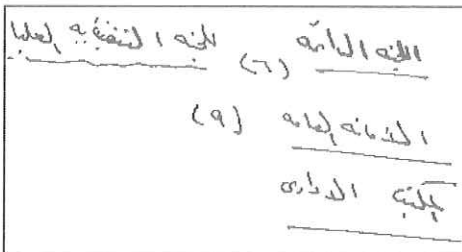 اللجنه الدائمه (٦) للجنه التنفيذيه العليا
الامانه العامه (٩)
المكتب الادارى